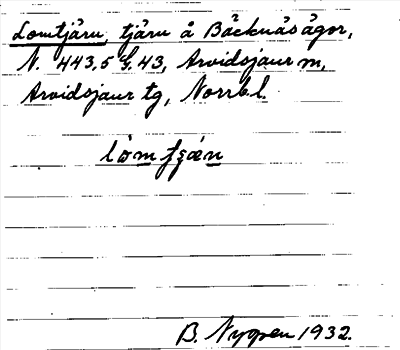 Lomtjärn, tjärn å Bäcknäsägor,
N. 443,5 G. 43, Arvidsjaur m,
Arvidsjaur tg, Norrb. l.
B. Nygren 1932.